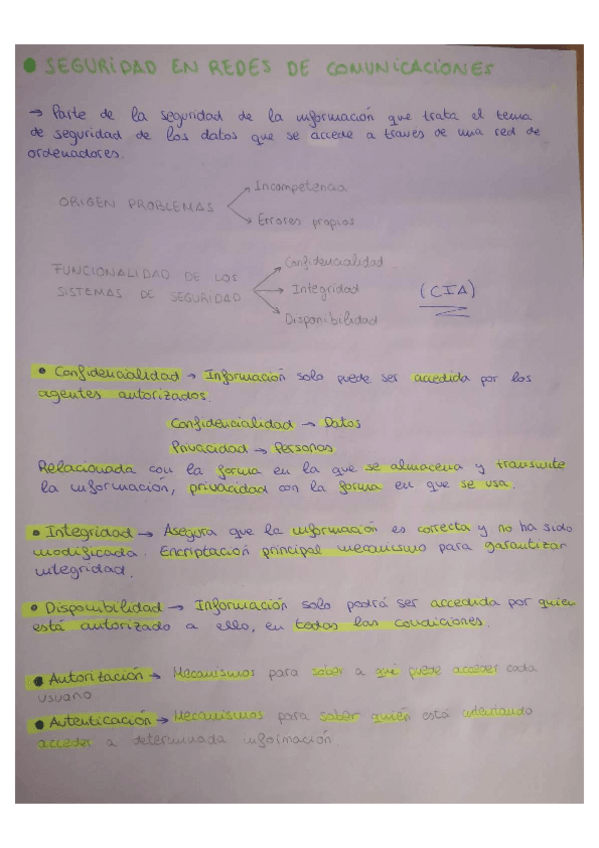 • SEGURIDAD EN REDES DE COMUNICACIONES
→ Parte de la seguridad de la información que trata el tema
de seguridad de los datos que se accede a traves de una red de
ordenadores.
Incompetencia
ORIGEN PROBLEMAS
Errores propios
Confidencialidad
FUNCIONALIDAD DE LOS
SISTEMAS DE SEGURIDAD
→ Integridad
(CIA)
Disponibilidad
• Confidencialidad → Información solo puede ser accedida por los
agentes autorizados.
Confidencialidad → Datos
Privacidad → Personas
Relacionada con la forma en la que se almacena y transmite
la información, privacidad con la forma en que se usa.
• Integridad → Asegura que la información es correcta y no ha sido
modificada. Encriptación principal mecanismo para garantizar
integridad.
• Disponibilidad → Información solo podrá ser accedida por quien
está autorizado a ello, en todas las condiciones.
• Autorización → Mecanismos para saber a qué puede acceder cada
usuario
• Autenticación → Mecanismos para saber quién está intentando
acceder a determinada información.